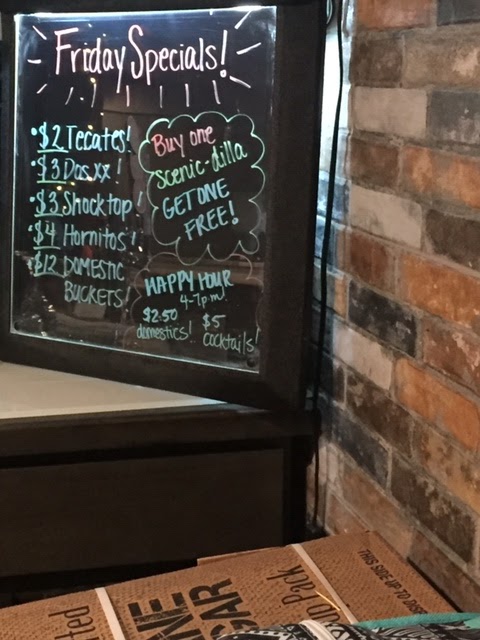 Friday Specials!
• $2 Tecates!
• $3 Dos xx!
• $3 Shock top!
• $4 Hornitos!
• $12 DOMESTIC
BUCKETS!
Buy one
scenic-dilla
GET ONE
FREE!
HAPPY HOUR
4-7p.m.
$2.50
domestics!
$5
cocktails!
THIS SIDE UP TO DISP
Pack